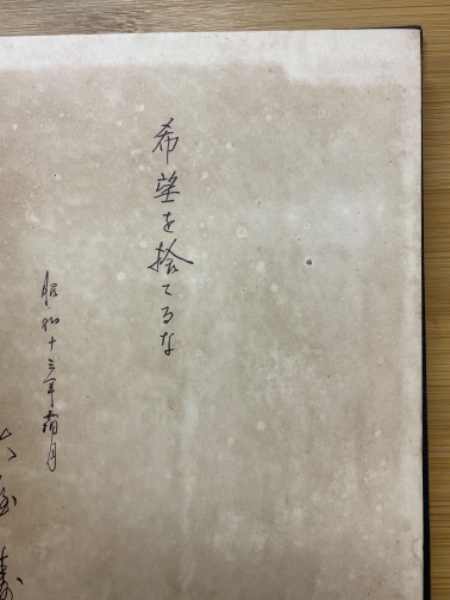 希望を捨てるな
昭和十三年霜月